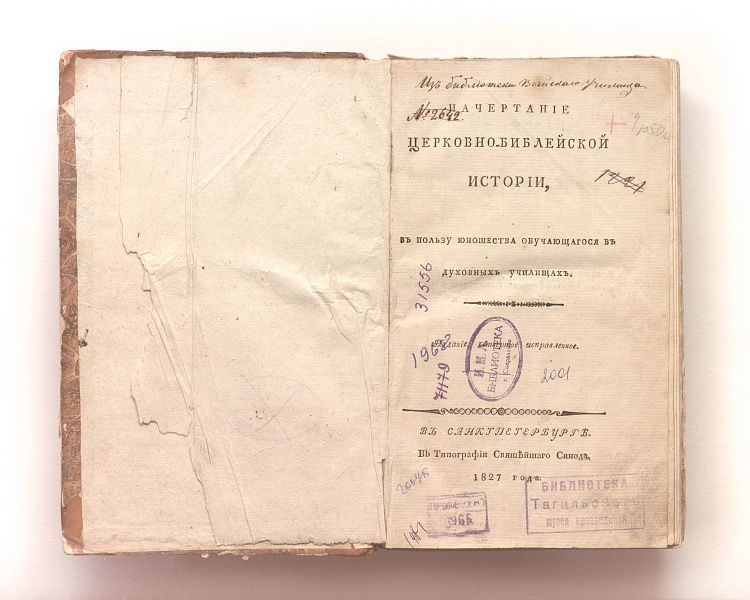 Изъ библіотеки Училища.
№ 2642.
НАЧЕРТАНІЕ
ЦЕРКОВНО-БИБЛЕЙСКОЙ
ИСТОРІИ,
ВЪ ПОЛЬЗУ ЮНОШЕСТВА ОБУЧАЮЩАГОСЯ ВЪ
ДУХОВНЫХЪ УЧИЛИЩАХЪ.
31556
Изданіе четвертое исправленное.
БИБЛИОТЕКА
71179
2001
ВЪ САНКТПЕТЕРБУРГѢ.
Въ Типографіи Святѣйшаго Синода,
1827 года.
БИБЛИОТЕКА
Тагильского
музея краеведения